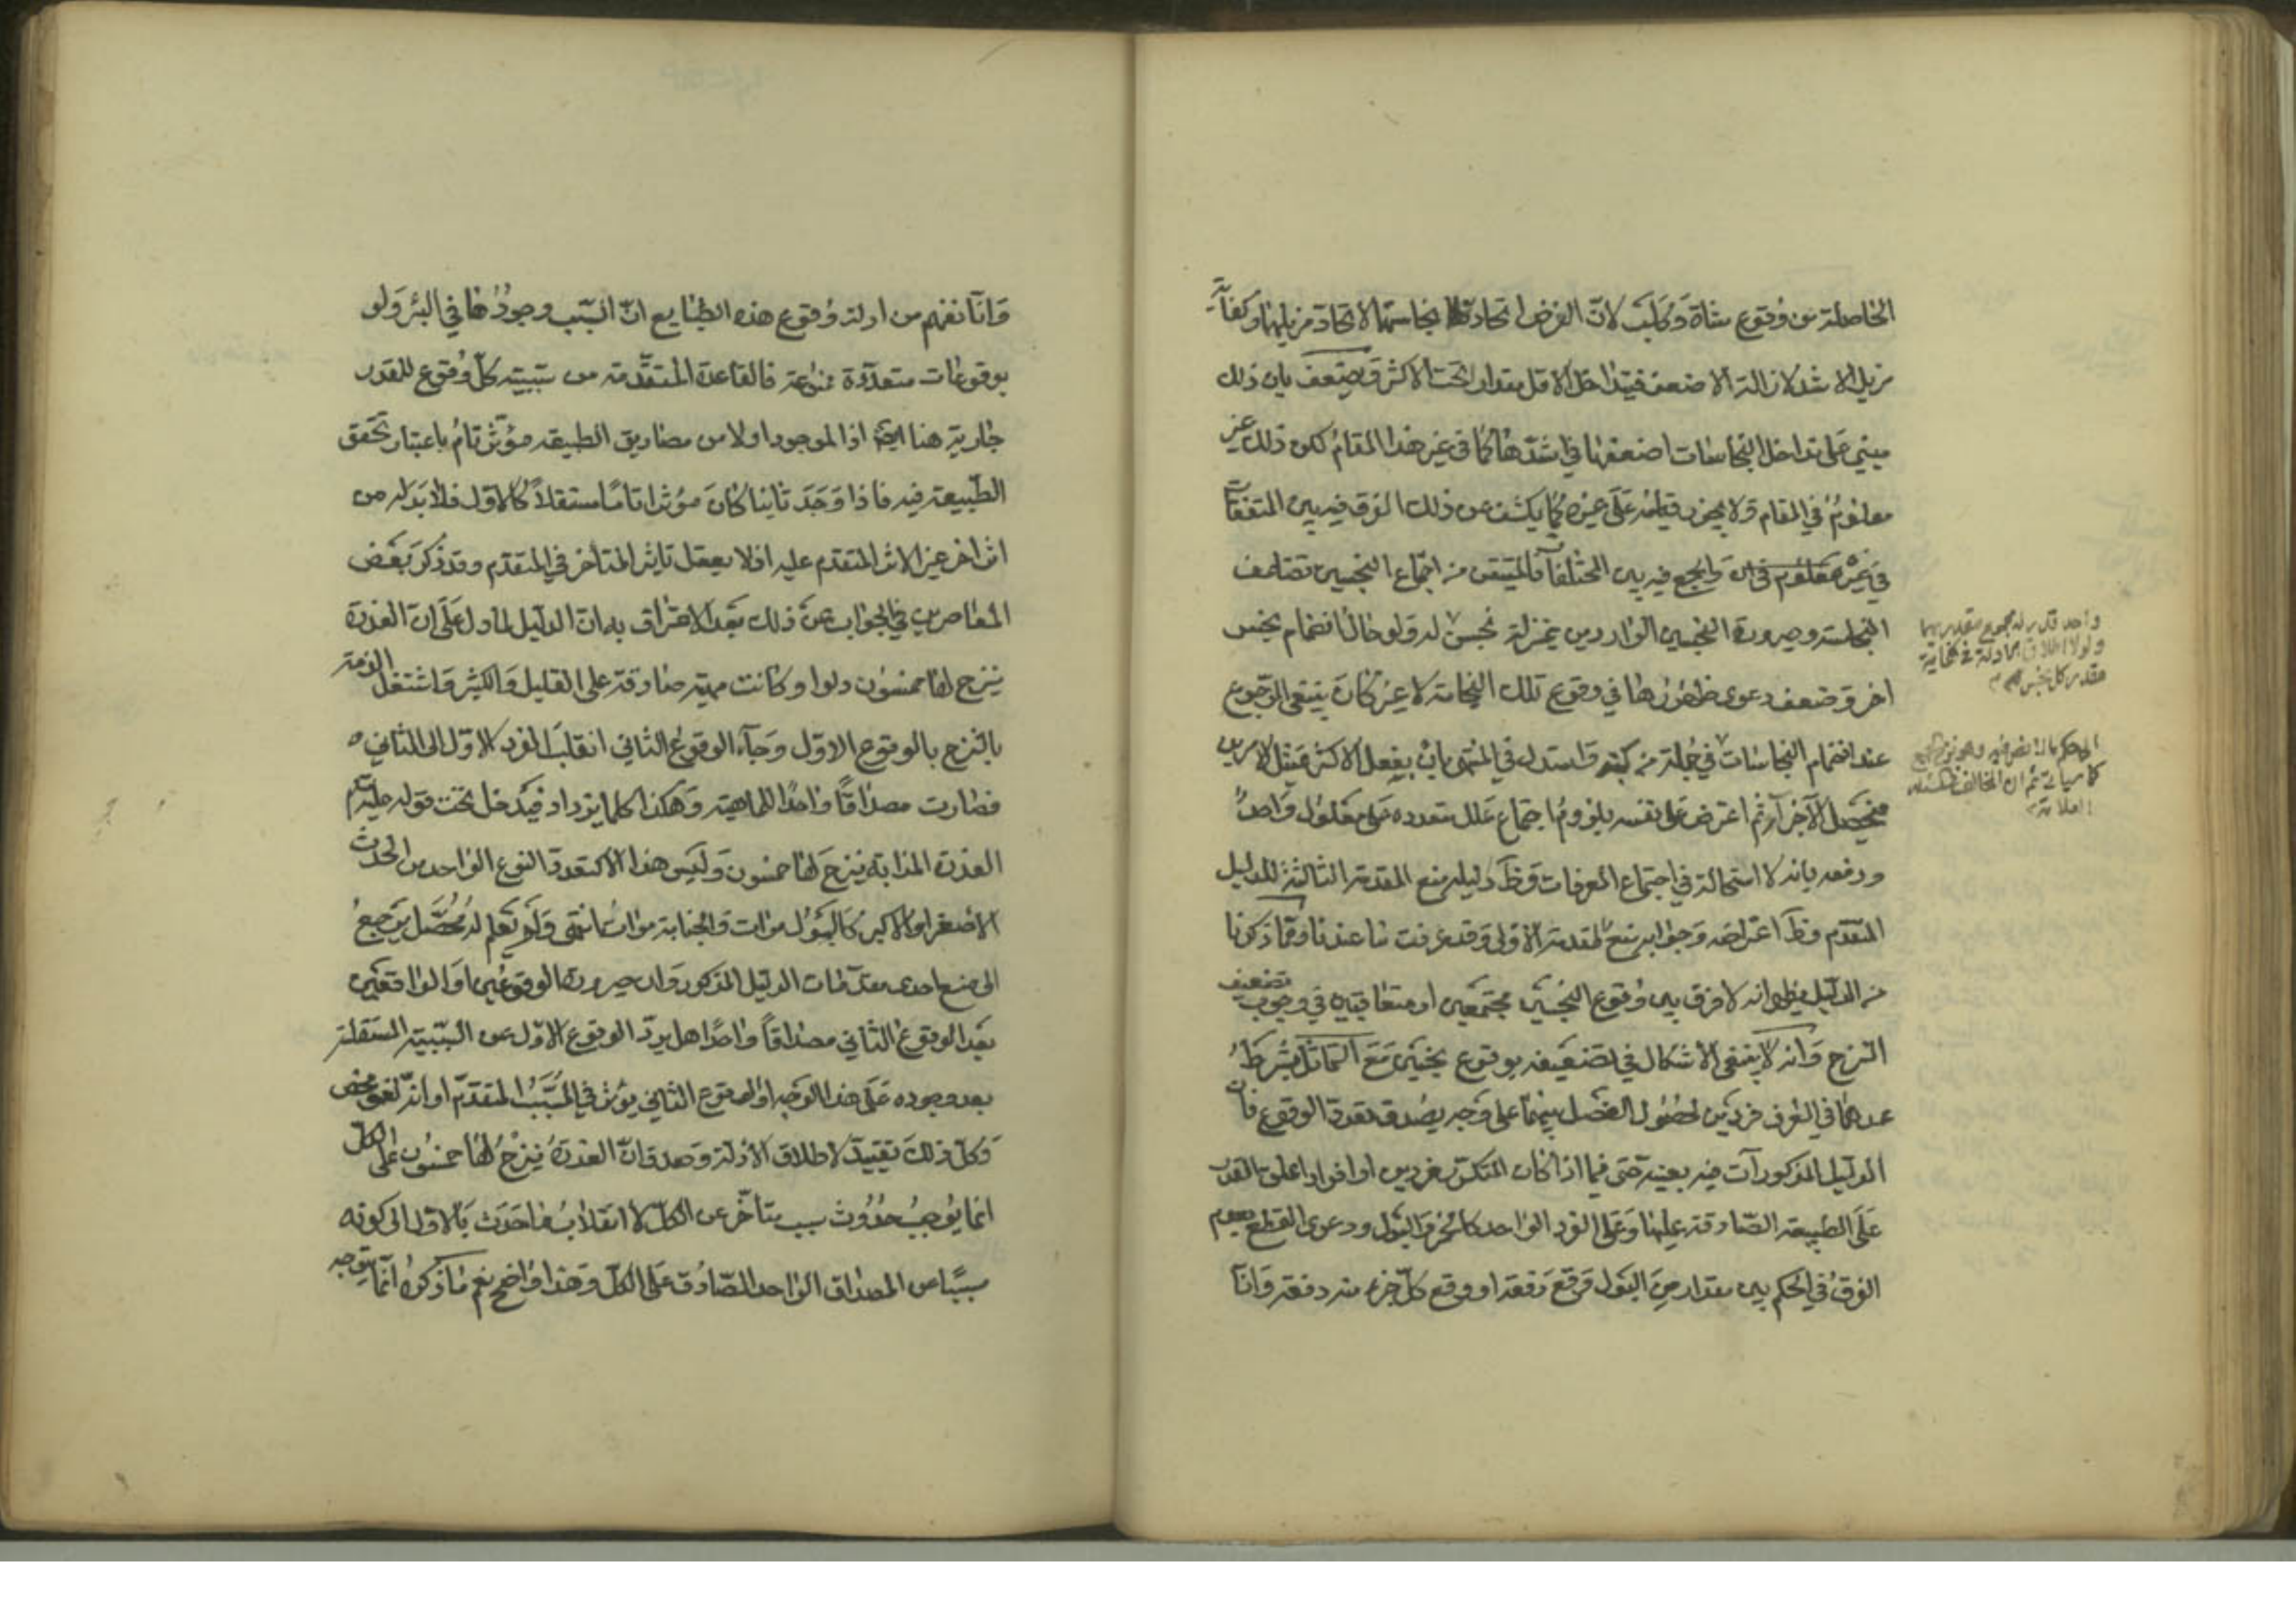 الحاصلة من وقوع شاة وكلب لانّ الفرض اتحاد نجاستهما لاتحاد مزيلهما وكفاية
مزيل الاشد لازالة الاضعف فيتداخل الاقل مقدارا تحت الاكثر ويضعف بان ذلك
مبني على تداخل النجاسات اضعفها في اشدّها كما في غير هذا المقام لكن ذلك غير
معلوم في المقام ولا يجوز قياسه على غيره كما يكشف عن ذلك الفرق فيه بين المتفقات
في غيره والجمع فيه بين المختلفات فالمتيقن من اجتماع النجسين تضاعف
النجاسة وصيرورة النجسين الواردين بمنزلة نجس لو خالنا انضمام نجس
اخر وضعف دعوى ظهورها في وقوع تلك النجاسة لا غير كان ينبغي الرجوع
عند انضمام النجاسات في جملة من كتبه واستدل في المنتهى بان بفعل الاكثر يمتثل الامرين
فيحصل الاجزاء ثم اعترض على نفسه بلزوم اجتماع علل متعدده على معلول واحد
ودفعه بانه لا استحالة في اجتماع المعرفات وظ دليله منع المقدمة الثالثة للدليل
المتقدم وظ اعتراضه وجوابه منع المقدمة الاولى وقد عرفت ما عندنا ومما ذكرنا
من الدليل يظهر انه لا فرق بين وقوع النجسين مجتمعين او متعاقبين في وجوب تضعيف
النزح وانه لا ينبغي الاشكال في تضعيفه بوقوع نجسين مع التماثل بشرط
عدهما في العرف فردين لحصول الفصل بينهما على وجه يصدق تعدد الوقوع فان
الدليل المذكور آت فيه بعينه حتى فيما اذا كان المتكرّر فردين او افراد اعلق القدر
على الطبيعة الصادقة عليها وعلى الفرد الواحد كالخمر والبول ودعوى القطع بعدم
الفرق في الحكم بين مقدار من البول وقع دفعة او وقع كل جزء منه دفعة وانّا
واحد قدر له مجموع مقدريهما
ولولا اطلاق الادلة في كفاية
مقدر كل نجس
وانّا نفهم من ادلة وقوع هذه الطبايع انّ السّبب وجودها في البئر ولو
بوقوعات متعدّدة ممنوعة فالقاعدة المتقدّمة من سببيّة كلّ وقوع للمقدر
جارية هنا ايضا اذ الموجود اولا من مصاديق الطبيعة مؤثّر تامّ باعتبار تحقق
الطّبيعة فيه فاذا وجد ثانيا كان مؤثرا تامّا مستقلاً كالاول فلا بدّ له من
اثر اخر غير الاثر المتقدم عليه اذ لا يعقل تاثير المتاخر في المتقدم وقد ذكر بعض
المعاصرين في الجواب عن ذلك بعد الاعتراف به ان الدّليل لما دل على ان العذرة
ينزح لها خمسون دلوا وكانت مهيّة صادقة على القليل والكثير واشتغل الذمة
بالنزح بالوقوع الاوّل وجاء الوقوع الثاني انقلب الفرد الاوّل الى الثاني
فصارت مصداقاً واحداً للماهية وهكذا كلما يزداد فيدخل تحت قوله عليه السّلم
العذرة المذابة ينزح لها خمسون وليس هذا الا كتعدد النوع الواحد من الحدث
الاصغر او الاكبر كالبول مرات والجنابة مرات انتهى ولم نعلم له محصّل يرجع
الى منع احدى مقدّمات الدليل المذكور وان صيرورة الوقوعين او الواقعين
بعد الوقوع الثاني مصداقاً واحدا هل يردّ الوقوع الاوّل عن السّببية المستقلة
بعد وجوده على هذا الوجه او الوقوع الثاني يؤثر في المسبّب المتقدّم او انّه لغو محض
وكلّ ذلك تقييد لاطلاق الادلة وصدق انّ العذرة ينزح لها خمسون على الكل
انما يوجب حدوث سبب متاخّر عن الكلّ لا انقلاب ما حدث بالاول الى كونه
مسبّبا عن المصداق الواحد الصّادق على الكلّ وهذا واضح نعم ما ذكره انّما يتوجه